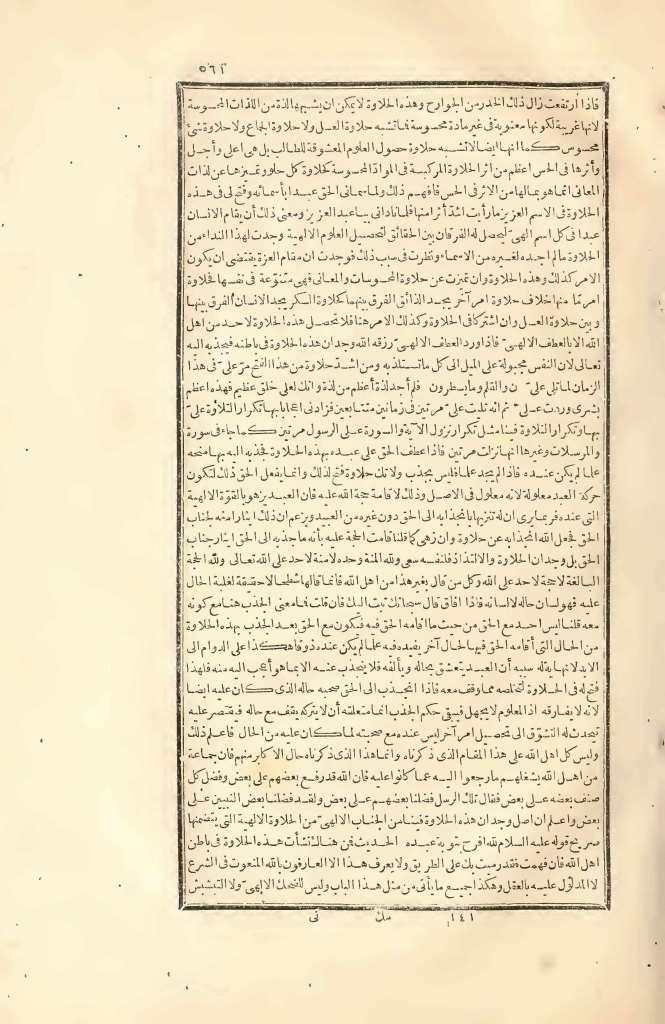 ٥٦٢
فاذا ارتفعت زال ذلك الخدر من الجوارح وهذه الحلاوة لا يمكن ان يشبهها لذة من اللذات المحسوسة
لانها غريبة لكونها معنوية فى غير مادة محسوسة فما تشبه حلاوة العسل ولا حلاوة الجماع ولا حلاوة شئ
محسوس كما انها ايضا لا تشبه حلاوة حصول العلوم المعشوقة للطالب بل هى اعلى وأجل
وأثرها فى الحس اعظم من اثر الحلاوة المركبة فى المواد المحسوسة كحلاوة كل حلو وتميزها عن لذات
المعانى انما هو بما لها من الاثر فى الحس فافهم ذلك ولما سمانى الحق عبدا بأسمائه وفتح لى فى هذه
الحلاوة فى الاسم العزيز ما رأيت اشد أثر منها فلما نادانى يا عبد العزيز ومعنى ذلك أن يقام الانسان
عبدا فى كل اسم الهى ليحصل له الفرقان بين الحقائق لتحصيل العلوم الالهية وجدت لهذا النداء من
الحلاوة ما لم اجده لغيره من الاسماء ونظرت فى سبب ذلك فوجدت ان مقام العزة يقتضى ان يكون
الامر كذلك وهذه الحلاوة وان تميزت عن حلاوة المحسوسات والمعانى فهى متنوعة فى نفسها فحلاوة
امر ما منها خلاف حلاوة امر آخر يجد الذائق الفرق بينهما كحلاوة السكر يجد الانسان الفرق بينها
وبين حلاوة العسل وان اشتركا فى الحلاوة وكذلك الامر هنا فلا تحصل هذه الحلاوة لاحد من اهل
الله الا بالعطف الالهى فاذا ورد العطف الالهى رزقه الله وجدان هذه الحلاوة فى باطنه فيجذبه اليه
تعالى لان النفس مجبولة على الميل الى كل ما تستلذ به ومن اشد حلاوة من هذا الفتح مر على فى هذا
الزمان لما تلى على ن والقلم وما يسطرون فلم أجد لذة أعظم من لذة وانك لعلى خلق عظيم فهذه اعظم
بشرى وردت على ثم انه تليت على مرتين فى زمانين متتابعين فزادنى اعجابا بها تكرار التلاوة على
بها وتكرار التلاوة فينا مثل تكرار نزول الآية والسورة على الرسول مرتين كما جاء فى سورة
والمرسلات وغيرها انها نزلت مرتين فاذا عطف الحق على عبده بهذه الحلاوة فجذبه اليه بها منحه
علما لم يكن عنده فاذا لم يجد علما فليس بجذب ولا تلك حلاوة فتح لذلك وانما يفعل الحق ذلك لتكون
حركة العبد معلولة لانه معلول فى الاصل وذلك لاقامة حجة الله عليه فان العبد يزهو بالقوة الالهية
التى عنده فربما يرى ان له تنزيها بانجذابه الى الحق دون غيره من العبيد ويزعم ان ذلك ايثار منه لجناب
الحق فجعل الله انجذابه عن حلاوة وان زهى كما قلنا قامت الحجة عليه بأنه ما جذبه الى الحق ايثار جناب
الحق بل وجدان الحلاوة والالتذاذ فلنفسه سعى ولله المنة وحده لا منة لاحد على الله تعالى ولله الحجة
البالغة لا حجة لاحد على الله وكل من قال بغير هذا من اهل الله فانما قالها شطحا لا حقيقة لغلبة الحال
عليه فهو لسان حاله لا لسانه فاذا افاق قال سبحانك تبت اليك فان قلت فما معنى الجذب هنا مع كونه
معه قلنا ليس احد مع الحق من حيث ما اقامه الحق فيه فيكون مع الحق بعد الجذب بهذه الحلاوة
من الحال التى أقامه الحق فيها لحال آخر يفيده فيه علما لم يكن عنده ذوقا هكذا على الدوام الى
الابد لانهاية له سببه أن العبد يتعشق بحاله ويألفه فلا ينجذب عنه الا بما هو أعجب اليه منه فلهذا
فتح له فى الحلاوة لتخلصه مما وقف معه فاذا انجذب الى الحق صحبه حاله الذى كان عليه ايضا
لانه لا يفارقه اذ المعلوم لا يجهل فيبقى حكم الجذب انما متعلقه أن لا يتركه يقف مع حاله فيقتصر عليه
فيحدث له التشوق الى تحصيل امر آخر ليس عنده مع صحبته لما كان عليه من الحال فاعلم ذلك
وليس كل اهل الله على هذا المقام الذى ذكرناه وانما هذا الذى ذكرناه حال الاكابر منهم فان جماعة
من اهل الله يشغلهم ما رجعوا اليه عما كانوا عليه فان الله قد رفع بعضهم على بعض وفضل كل
صنف بعضه على بعض فقال تلك الرسل فضلنا بعضهم على بعض ولقد فضلنا بعض النبيين على
بعض واعلم ان اصل وجدان هذه الحلاوة فينا من الجناب الالهى من الحلاوة الالهية التى يتضمنها
صريح قوله عليه السلام لله افرح بتوبة عبده الحديث فمن هنالك نشأت هذه الحلاوة فى باطن
اهل الله فان فهمت فقد رميت بك على الطريق ولا يعرف هذا الا العارفون بالله المنعوت فى الشرع
لا المدلول عليه بالعقل وهكذا جميع ما يأتى من مثل هذا الباب وليس للضحك الالهى ولا التبشبش
١٤١ مك نى